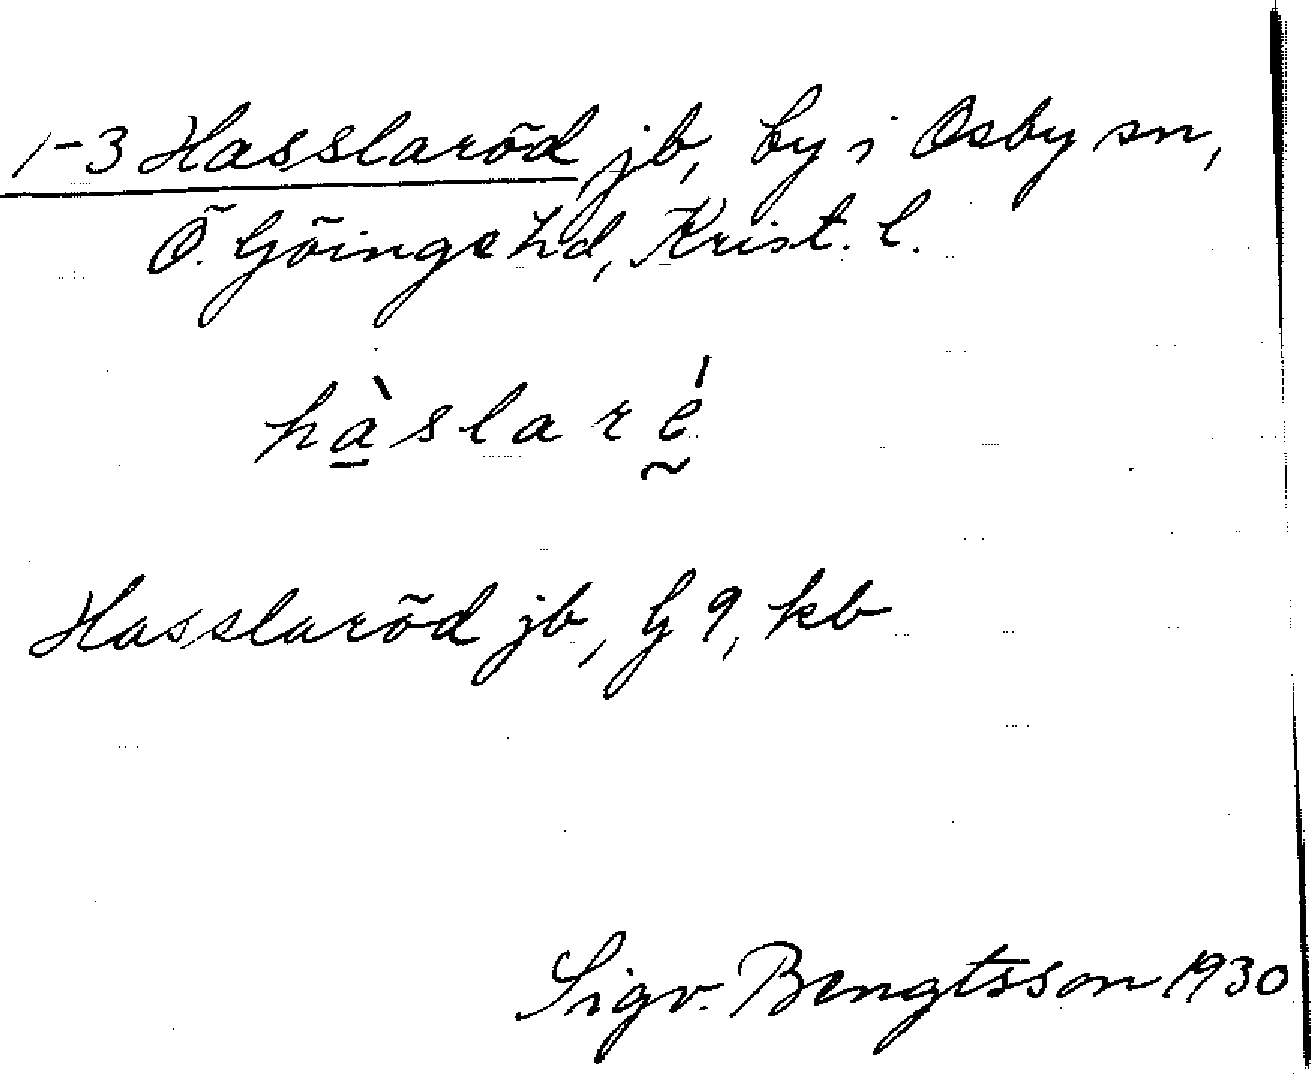 1-3 Hasslaröd jb, by i Osby sn,
Ö. Göinge hd, Krist. l.
hàslaré
Hasslaröd jb, G 9, kb
Sigv. Bengtsson 1930